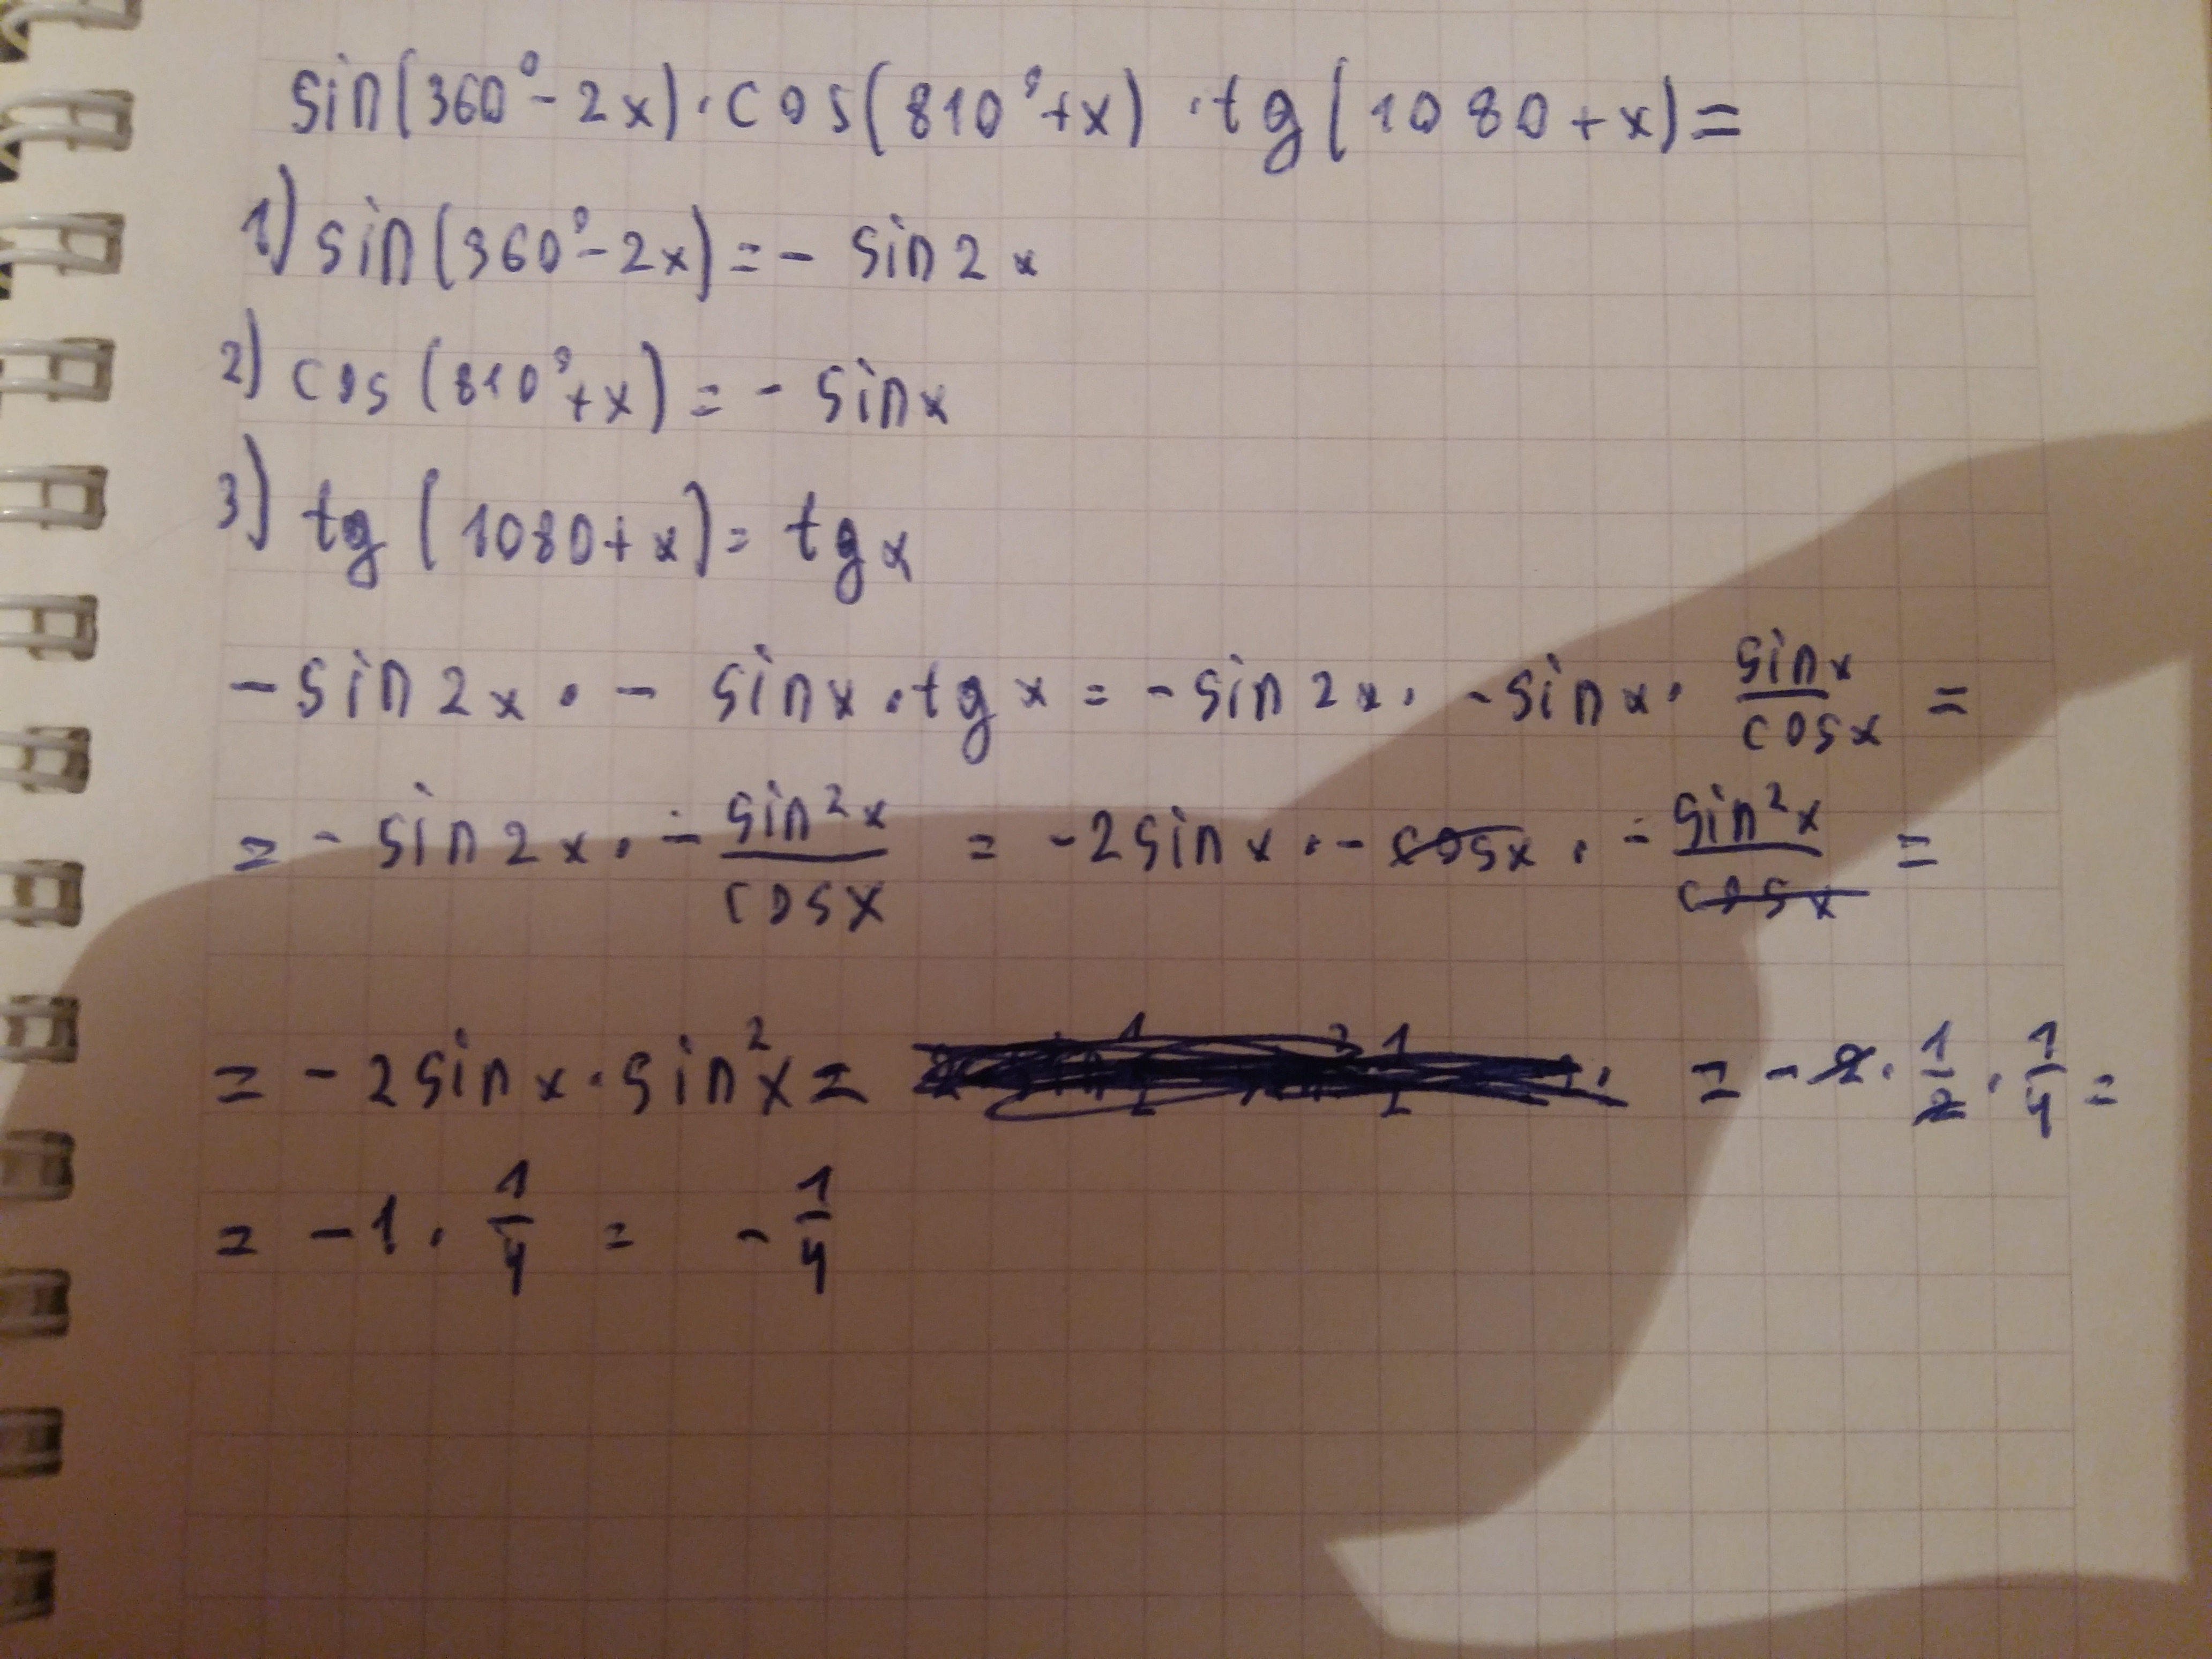 sin(360°-2x)·cos(810°+x)·tg(1080+x)=
1) sin(360°-2x)=- sin2x
2) cos(810°+x)=- sinx
3) tg(1080+x)= tgx
-sin2x·- sinx·tgx=-sin2x·-sinx·sinx/cosx=
=-sin2x·-sin²x/cosx=-2sinx·-cosx·-sin²x/cosx=
=-2sinx·sin²x= =-2·1/2·1/4=
=-1·1/4=-1/4